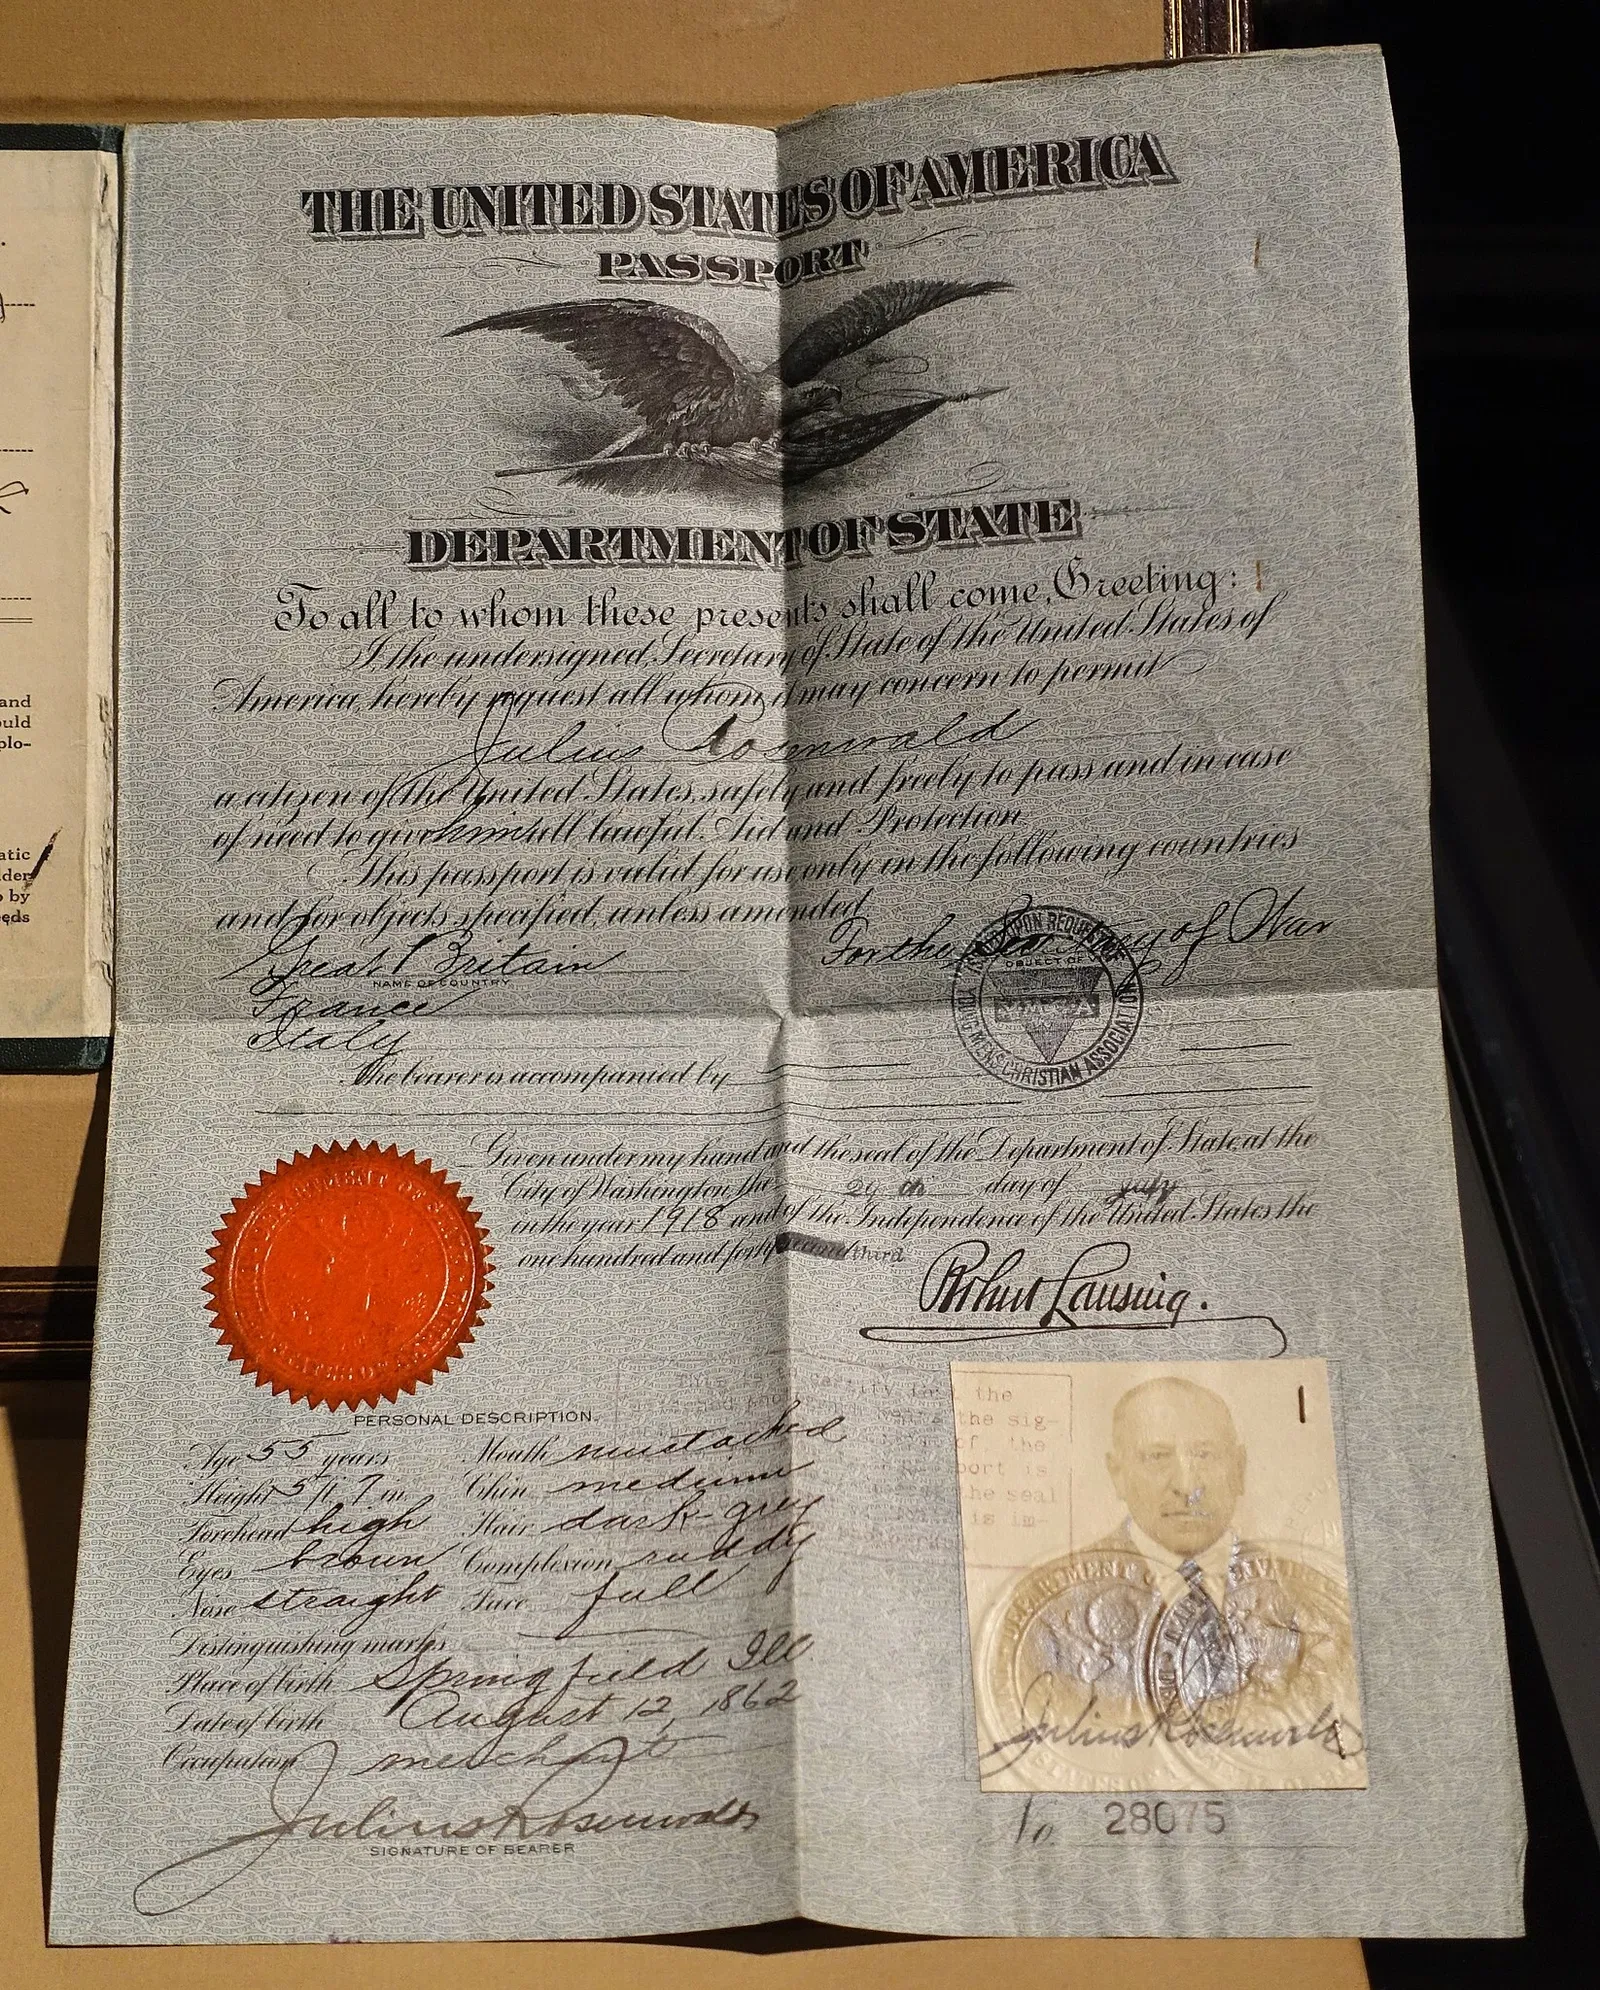 THE UNITED STATES OF AMERICA
PASSPORT
DEPARTMENT OF STATE
To all to whom these presents shall come, Greeting:
I the undersigned, Secretary of State of the United States of
America, hereby request all whom it may concern to permit
Julius Rosenwald
a citizen of the United States, safely and freely to pass and in case
of need to give him all lawful Aid and Protection.
This passport is valid for use only in the following countries
and for objects specified, unless amended.
Great Britain
NAME OF COUNTRY
France
Italy
For the Secretary of War
UPON REQUEST OF
OBJECT OF
YOUNG MEN'S CHRISTIAN ASSOCIATION
The bearer is accompanied by
Given under my hand and the seal of the Department of State, at the
City of Washington, the 29th day of July
in the year 1918 and of the Independence of the United States the
one hundred and forty third
Robert Lansing.
DEPARTMENT OF
PERSONAL DESCRIPTION.
Age 55 years
Mouth mustached
Height 5 ft 7 in
Chin medium
Forehead high
Hair dark-grey
Eyes brown
Complexion ruddy
Nose straight
Face full
Distinguishing marks
Place of birth Springfield Ill
Date of birth August 12, 1862
Occupation merchant
Julius Rosenwald
SIGNATURE OF BEARER
This is to certify that the
the sig-
of the
port is
the seal
is im-
Julius Rosenwald
No. 28075
and
ould
plo-
atic
lder
by
eds